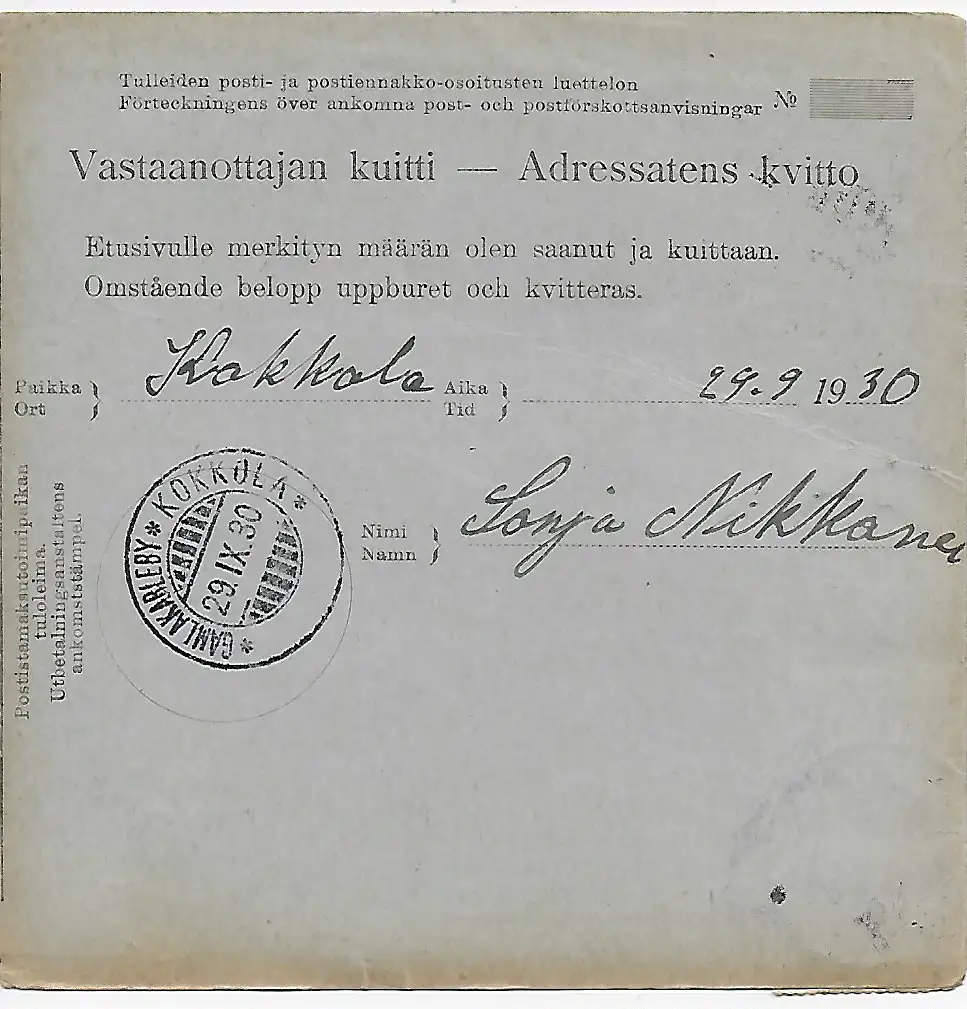 Tulleiden posti- ja postiennakko-osoitusten luettelon
Förteckningens över ankomna post- och postförskottsanvisningar №
Vastaanottajan kuitti — Adressatens kvitto
Etusivulle merkityn määrän olen saanut ja kuittaan.
Omstående belopp uppburet och kvitteras.
Paikka Kokkola Aika 29.9 1930
Ort Tid
KOKKOLA
29.IX.30
GAMLAKARLEBY
Nimi Sonja Nikkanen
Namn
Postistamaksutoimipaikan
tuloleima.
Utbetalningsanstaltens
ankomststämpel.